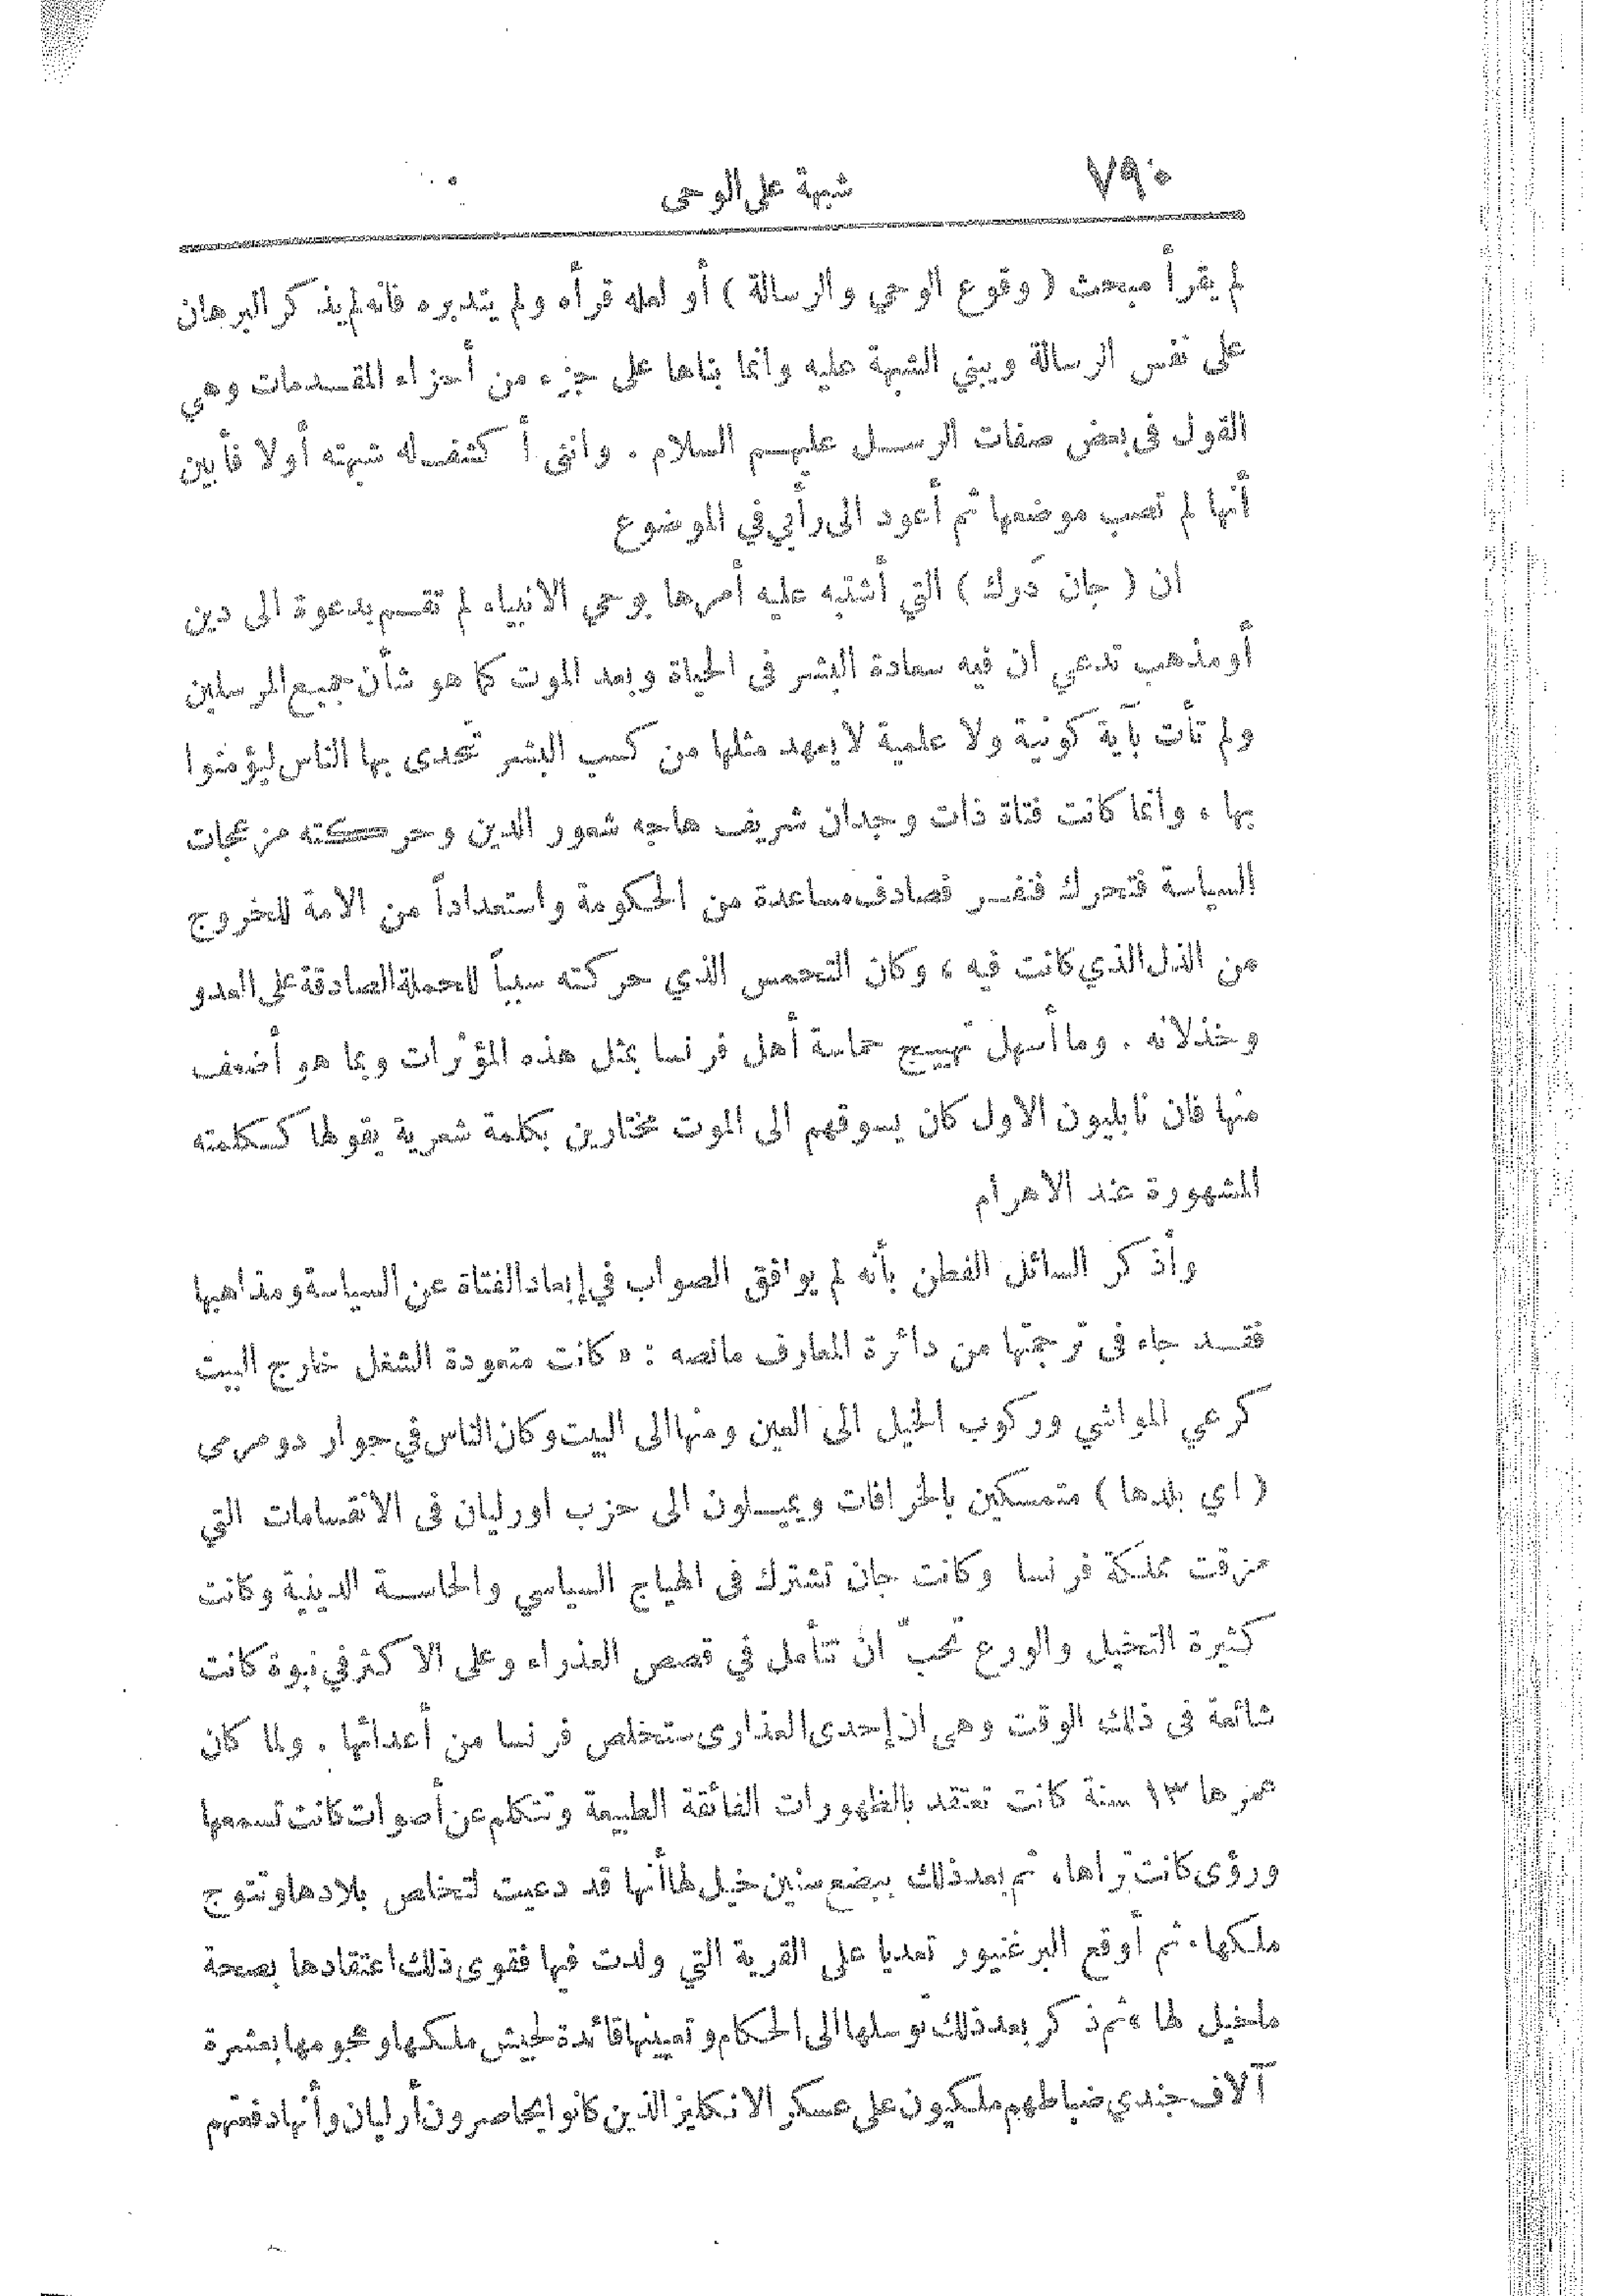 ٧٩٠
شبهة على الوحى
لم يقرأ مبحث ( وقوع الوحي والرسالة ) أو لعله قرأه ولم يتدبره فانه لم يذكر البرهان
على نفس الرسالة ويبني الشبهة عليه وانما بناها على جزء من أجزاء المقدمات وهي
القول فى بعض صفات الرسل عليهم السلام . وانني أ كشف له شبهته أولا فأبين
أنها لم تصب موضعها ثم أعود الى رأيي في الموضوع
ان ( جان دَرك ) التي أشتبه عليه أمرها بوحي الانبياء لم تقم بدعوة الى دين
أو مذهب تدعي ان فيه سعادة البشر فى الحياة وبعد الموت كما هو شأن جميع المرسلين
ولم تأت بآية كونية ولا علمية لا يعهد مثلها من كسب البشر تتحدى بها الناس ليؤمنوا
بها ، وانما كانت فتاة ذات وجدان شريف هاجه شعور الدين وحركته مزعجات
السياسة فتحرك فنفر فصادف مساعدة من الحكومة واستعداداً من الامة للخروج
من الذل الذي كانت فيه ، وكان التحمس الذي حركته سبباً للحملة الصادقة على العدو
وخذلانه . وما أسهل تهييج حماسة أهل فرنسا بمثل هذه المؤثرات وبما هو أضعف
منها فان نابليون الاول كان يسوقهم الى الموت مختارين بكلمة شعرية يقولها ككلمته
المشهورة عند الاهرام
وأذكر السائل الفطن بأنه لم يوافق الصواب في إبعاد الفتاة عن السياسة ومذاهبها
فقد جاء فى ترجمتها من دائرة المعارف مانصه : « كانت متعودة الشغل خارج البيت
كرعي المواشي وركوب الخيل الى العين ومنها الى البيت وكان الناس في جوار دومرمى
( اي بلدها ) متمسكين بالخرافات ويميلون الى حزب اورليان فى الانقسامات التي
مزقت مملكة فرنسا وكانت جان تشترك فى الهياج السياسي والحماسة الدينية وكانت
كثيرة التخيل والورع تحبّ ان تتأمل في قصص العذراء وعلى الاكثر في نبوة كانت
شائعة فى ذلك الوقت وهي ان إحدى العذارى ستخلص فرنسا من أعدائها . ولما كان
عمرها ١٣ سنة كانت تعتقد بالظهورات الفائقة الطبيعة وتتكلم عن أصوات كانت تسمعها
ورؤى كانت تراها، ثم بعد ذلك ببضع سنين خيل لها أنها قد دعيت لتخلص بلادها وتتوج
ملكها، ثم أوقع البرغنيور تعديا على القرية التي ولدت فيها فقوى ذلك اعتقادها بصحة
ماخيل لها » ثم ذكر بعد ذلك توسلها الى الحكام وتعيينها قائدة لجيش ملكها وهجومها بعشرة
آلاف جندي ضباطهم ملكيون على عسكر الانكليز الذين كانوا يحاصرون أرليان وأنها دفعتهم